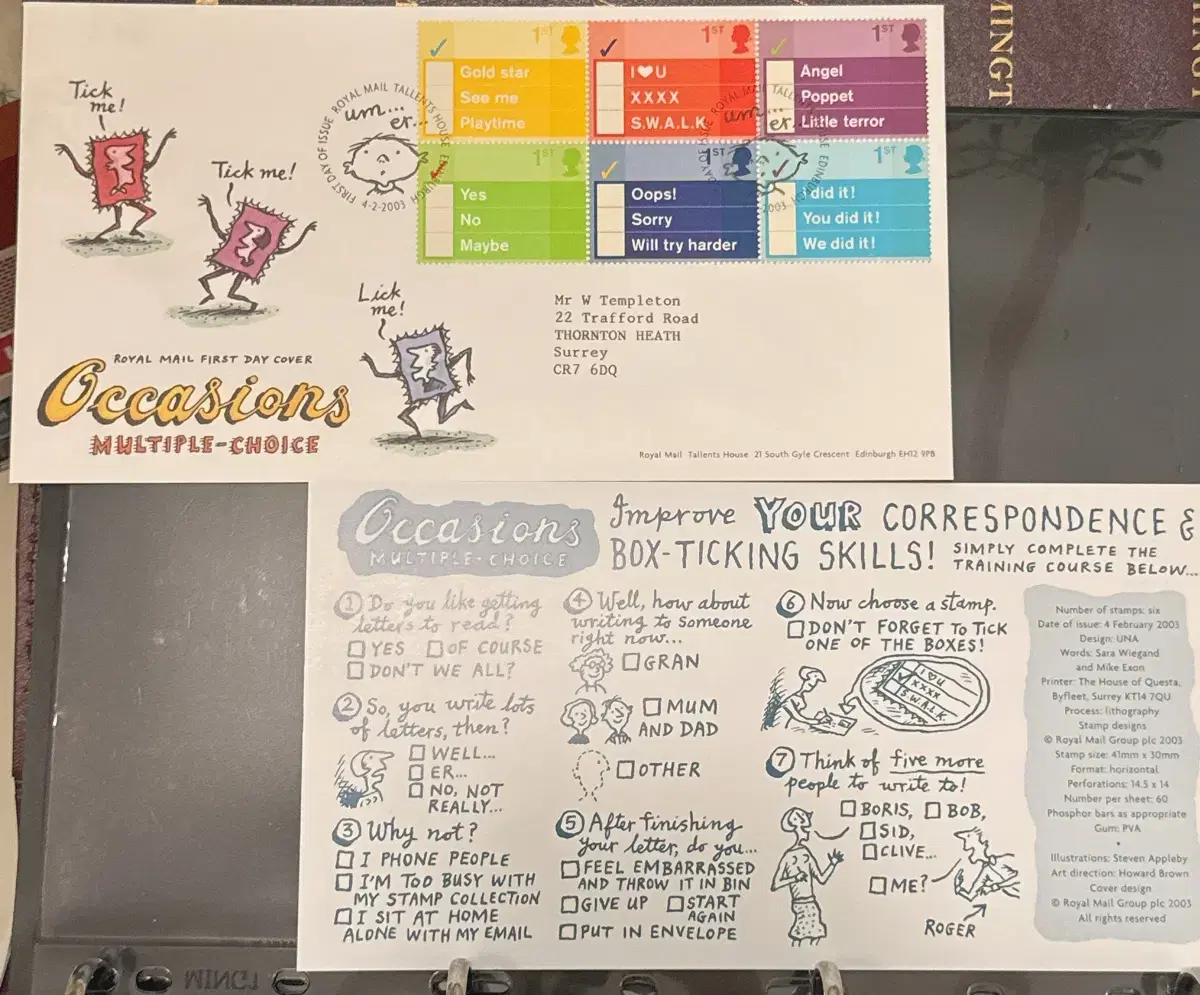 MINGT
Tick
me!
Tick me!
Lick
me!
ROYAL MAIL FIRST DAY COVER
Occasions
MULTIPLE-CHOICE
FIRST DAY OF ISSUE ROYAL MAIL TALLENTS HOUSE EDINBURGH
um...
er...
4-2-2003
1ST
Gold star
See me
Playtime
1ST
I♥U
XXXX
S.W.A.L.K.
1ST
Angel
Poppet
Little terror
1ST
Yes
No
Maybe
1ST
Oops!
Sorry
Will try harder
1ST
I did it!
You did it!
We did it!
um...
er.
Mr W Templeton
22 Trafford Road
THORNTON HEATH
Surrey
CR7 6DQ
Royal Mail Tallents House 21 South Gyle Crescent Edinburgh EH12 9PB
Occasions
MULTIPLE-CHOICE
Improve YOUR CORRESPONDENCE &
BOX-TICKING SKILLS! SIMPLY COMPLETE THE
TRAINING COURSE BELOW...
1 Do you like getting
letters to read?
YES OF COURSE
DON'T WE ALL?
2 So, you write lots
of letters, then?
WELL...
ER...
NO, NOT
REALLY...
3 Why not?
I PHONE PEOPLE
I'M TOO BUSY WITH
MY STAMP COLLECTION
I SIT AT HOME
ALONE WITH MY EMAIL
4 Well, how about
writing to someone
right now...
GRAN
MUM
AND DAD
OTHER
5 After finishing
your letter, do you...
FEEL EMBARRASSED
AND THROW IT IN BIN
GIVE UP START
AGAIN
PUT IN ENVELOPE
6 Now choose a stamp.
DON'T FORGET TO TICK
ONE OF THE BOXES!
I♥U
XXXX
S.W.A.L.K.
7 Think of five more
people to write to!
BORIS, BOB,
SID,
CLIVE...
ME?
ROGER
Number of stamps: six
Date of issue: 4 February 2003
Design: UNA
Words: Sara Wiegand
and Mike Exon
Printer: The House of Questa,
Byfleet, Surrey KT14 7QU
Process: lithography
Stamp designs
© Royal Mail Group plc 2003
Stamp size: 41mm x 30mm
Format: horizontal
Perforations: 14.5 x 14
Number per sheet: 60
Phosphor bars as appropriate
Gum: PVA
Illustrations: Steven Appleby
Art direction: Howard Brown
Cover design
© Royal Mail Group plc 2003
All rights reserved
MINGT